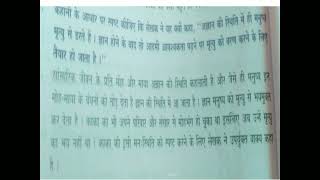 कहानी के आधार पर स्पष्ट कीजिए कि लेखक ने यह क्यों कहा, "अज्ञान की स्थिति में ही मनुष्य
मृत्यु से डरते हैं। ज्ञान होने के बाद तो आदमी आवश्यकता पड़ने पर मृत्यु को वरण करने के लिए
तैयार हो जाता है।"
सांसारिक जीवन के प्रति मोह और माया अज्ञान की स्थिति कहलाती है और जैसे ही मनुष्य इस
मोह-माया के बंधनों को तोड़ देता है ज्ञान की स्थिति आ जाती है। ज्ञान मनुष्य को मृत्यु से भयमुक्त
कर देता है। काका का भी अपने परिवार और संसार से मोहभंग हो चुका था इसलिए अब उन्हें मृत्यु
का भय नहीं था। काका की इसी मनःस्थिति को स्पष्ट करने के लिए लेखक ने उपर्युक्त वाक्य कहा
है।